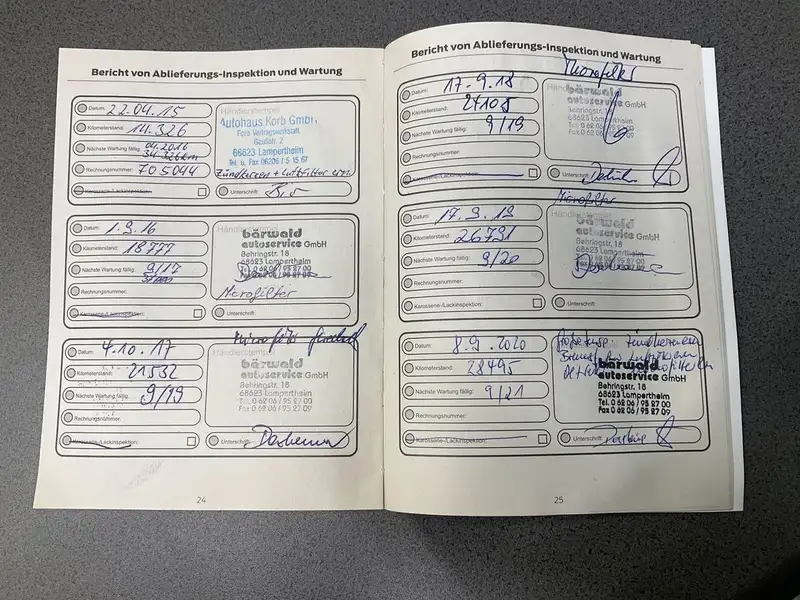 Bericht von Ablieferungs-Inspektion und Wartung
Datum: 22.04.15
Kilometerstand: 14.326
Nächste Wartung fällig: 04.2016
34.326km
Rechnungsnummer: 705044
Karosserie-/Lackinspektion:
Händlerstempel
Autohaus Korb GmbH
Ford Vertragswerkstatt
Gaußstr. 2
68623 Lampertheim
Tel. u. Fax 06206 / 5 15 67
Zündkerzen + Luftfilter ern.
Unterschrift:
Datum: 1.9.16
Kilometerstand: 18777
Nächste Wartung fällig: 9/17
Rechnungsnummer:
Karosserie-/Lackinspektion:
Händlerstempel
bärwald
autoservice GmbH
Behringstr. 18
68623 Lampertheim
Tel. 0 62 06 / 95 27 00
Fax 0 62 06 / 95 27 09
Microfilter
Unterschrift:
Datum: 4.10.17
Kilometerstand: 21532
Nächste Wartung fällig: 9/19
Rechnungsnummer:
Karosserie-/Lackinspektion:
Microfilter
Händlerstempel
bärwald
autoservice GmbH
Behringstr. 18
68623 Lampertheim
Tel. 0 62 06 / 95 27 00
Fax 0 62 06 / 95 27 09
Unterschrift:
24
Bericht von Ablieferungs-Inspektion und Wartung
Datum: 17.9.18
Kilometerstand: 24108
Nächste Wartung fällig: 9/19
Rechnungsnummer:
Karosserie-/Lackinspektion:
bärwald
autoservice GmbH
Behringstr. 18
68623 Lampertheim
Tel. 0 62 06 / 95 27 00
Fax 0 62 06 / 95 27 09
Unterschrift:
Datum: 17.9.19
Kilometerstand: 26791
Nächste Wartung fällig: 9/20
Rechnungsnummer:
Karosserie-/Lackinspektion:
Microfilter
Händlerstempel
bärwald
autoservice GmbH
Behringstr. 18
68623 Lampertheim
Unterschrift:
Datum: 8.9.2020
Kilometerstand: 28495
Nächste Wartung fällig: 9/21
Rechnungsnummer:
Karosserie-/Lackinspektion:
Zündkerzen
bärwald
autoservice GmbH
Behringstr. 18
68623 Lampertheim
Tel. 0 62 06 / 95 27 00
Fax 0 62 06 / 95 27 09
Unterschrift:
25